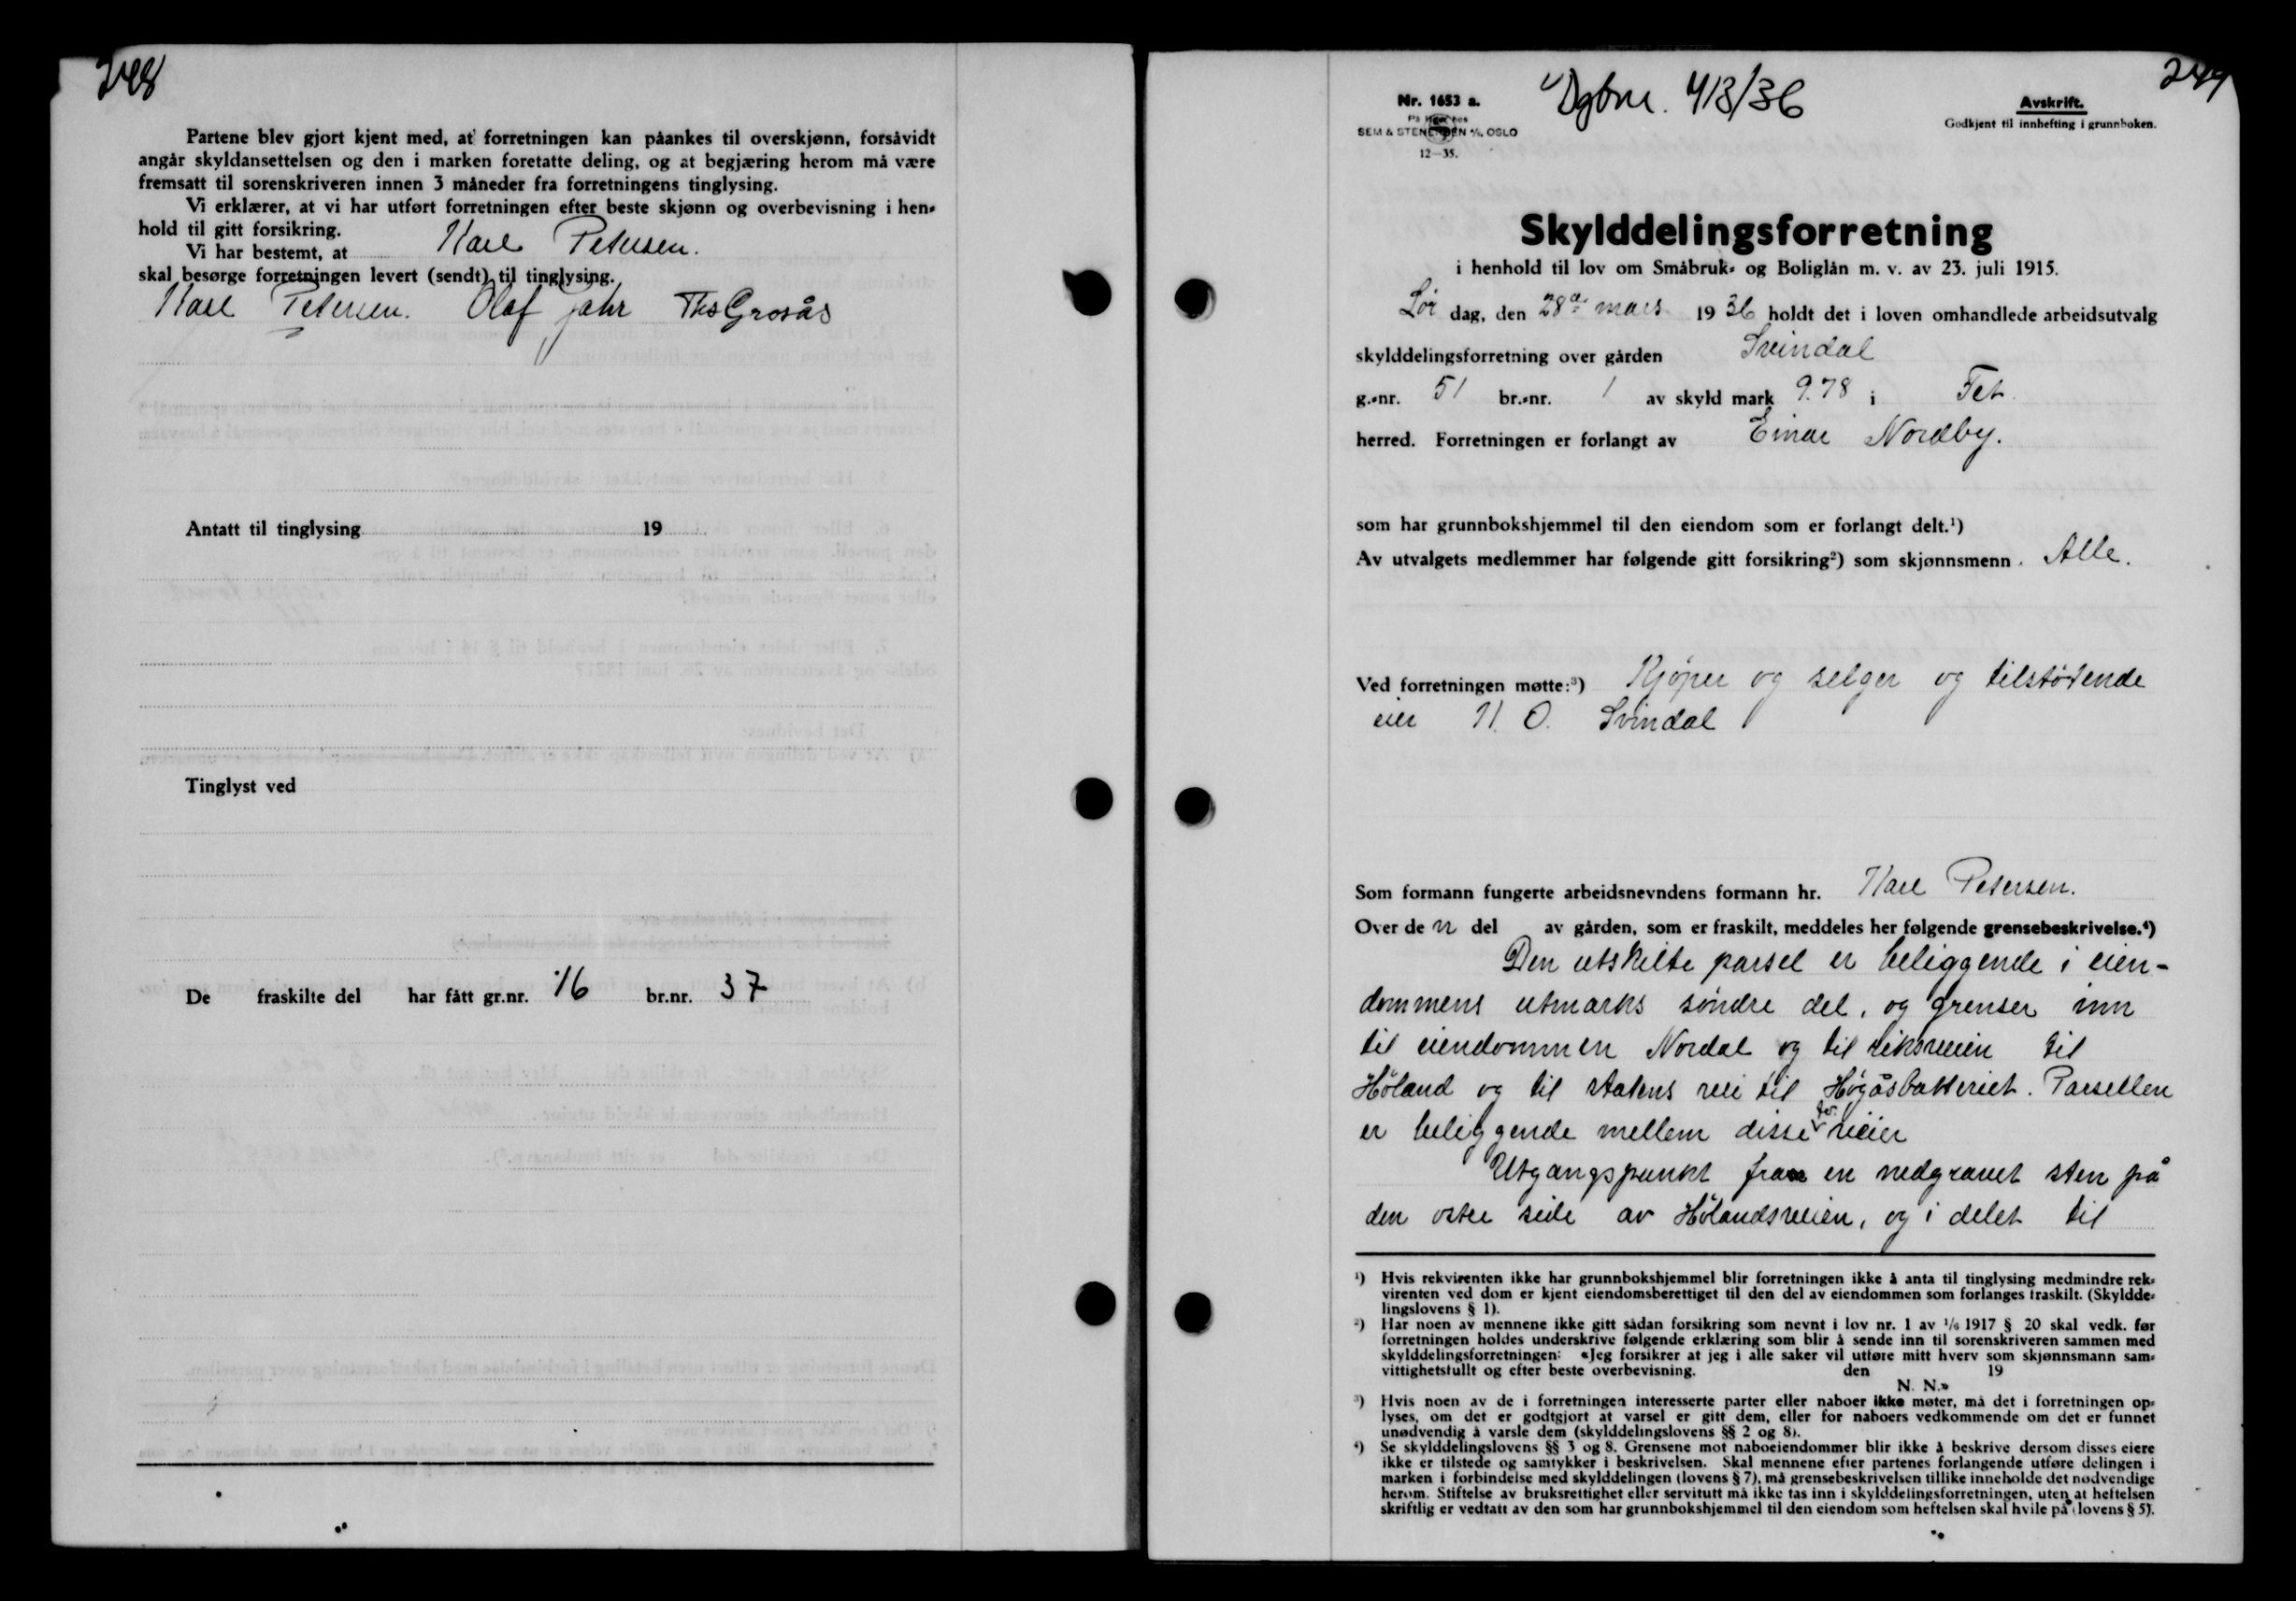 248
Partene blev gjort kjent med, at forretningen kan påankes til overskjønn, forsåvidt
angår skyldansettelsen og den i marken foretatte deling, og at begjæring herom må være
fremsatt til sorenskriveren innen 3 måneder fra forretningens tinglysing.
Vi erklærer, at vi har utført forretningen efter beste skjønn og overbevisning i hen-
hold til gitt forsikring.
Vi har bestemt, at Karl Petersen.
skal besørge forretningen levert (sendt) til tinglysing.
Karl Petersen. Olaf Jahr Ths Grosås
Antatt til tinglysing 19
Tinglyst ved
De fraskilte del har fått gr.nr. 16 br.nr. 37
249
Nr. 1653 a.
På lager hos
SEM & STENERSEN A/S, OSLO
12—35.
Dgbnr. 413/36
Avskrift.
Godkjent til innhefting i grunnboken.
Skylddelingsforretning
i henhold til lov om Småbruk- og Boliglån m. v. av 23. juli 1915.
Lør dag, den 28de mars 1936 holdt det i loven omhandlede arbeidsutvalg
skylddelingsforretning over gården Svindal
g.-nr. 51 br.-nr. 1 av skyld mark 9.78 i Fet
herred. Forretningen er forlangt av Einar Nordby.
som har grunnbokshjemmel til den eiendom som er forlangt delt.¹)
Av utvalgets medlemmer har følgende gitt forsikring²) som skjønnsmenn. Alle.
Ved forretningen møtte:³) Kjøper og selger og tilstøtende
eier H. O. Svindal
Som formann fungerte arbeidsnevndens formann hr. Karl Petersen.
Over de n del av gården, som er fraskilt, meddeles her følgende grensebeskrivelse.⁴)
Den utskilte parsel er beliggende i eien-
dommens utmarks søndre del, og grenser inn
til eiendommen Nordal og til riksveien til
Høland og til statens vei til Høgåsbatteriet. Parsellen
er beliggende mellem disse to veier
Utgangspunkt fra en nedgravet sten på
den østre side av Hølandsveien, og i delet til
¹) Hvis rekvirenten ikke har grunnbokshjemmel blir forretningen ikke å anta til tinglysing medmindre rek-
virenten ved dom er kjent eiendomsberettiget til den del av eiendommen som forlanges fraskilt. (Skyldde-
lingslovens § 1).
²) Har noen av mennene ikke gitt sådan forsikring som nevnt i lov nr. 1 av 1/6 1917 § 20 skal vedk. før
forretningen holdes underskrive følgende erklæring som blir å sende inn til sorenskriveren sammen med
skylddelingsforretningen: «Jeg forsikrer at jeg i alle saker vil utføre mitt hverv som skjønnsmann sam-
vittighetsfullt og efter beste overbevisning. den 19
N. N.»
³) Hvis noen av de i forretningen interesserte parter eller naboer ikke møter, må det i forretningen op-
lyses, om det er godtgjort at varsel er gitt dem, eller for naboers vedkommende om det er funnet
unødvendig å varsle dem (skylddelingslovens §§ 2 og 8).
⁴) Se skylddelingslovens §§ 3 og 8. Grensene mot naboeiendommer blir ikke å beskrive dersom disses eiere
ikke er tilstede og samtykker i beskrivelsen. Skal mennene efter partenes forlangende utføre delingen i
marken i forbindelse med skylddelingen (lovens § 7), må grensebeskrivelsen tillike inneholde det nødvendige
herom. Stiftelse av bruksrettighet eller servitutt må ikke tas inn i skylddelingsforretningen, uten at heftelsen
skriftlig er vedtatt av den som har grunnbokshjemmel til den eiendom som heftelsen skal hvile på (lovens § 5).